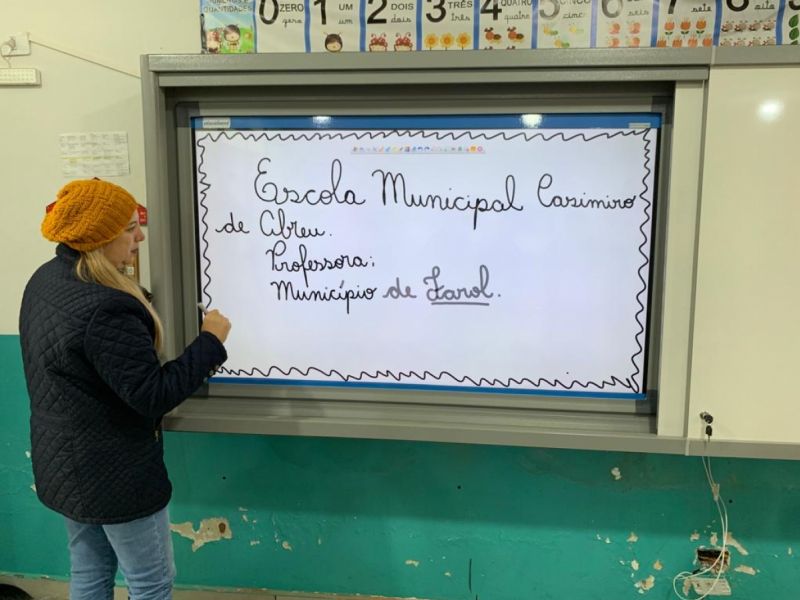 QUANTIDADES
0 ZERO zero
1 UM um
2 DOIS dois
3 TRÊS três
4 QUATRO quatro
5 CINCO cinco
6 SEIS seis
7 SETE sete
8 OITO oito
Escola Municipal Casimiro
de Abreu.
Professora:
Município de Farol.